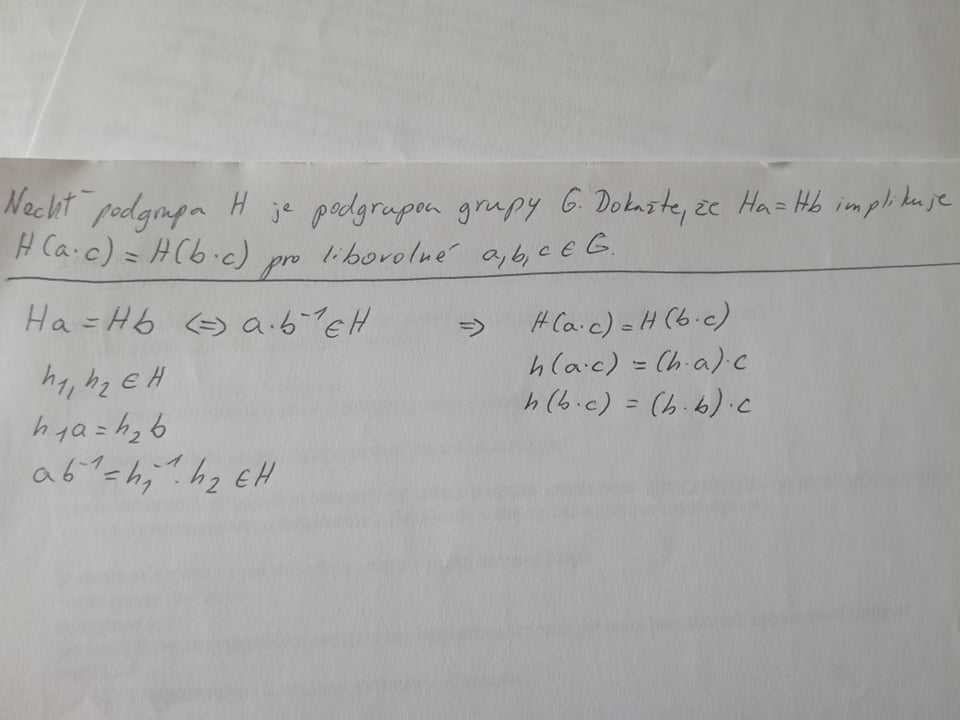 Nechť podgrupa H je podgrupou grupy G. Dokažte, že Ha=Hb implikuje
H(a·c) = H(b·c) pro libovolné a,b,c ∈ G.
Ha = Hb <=> a·b⁻¹ ∈ H => H(a·c) = H(b·c)
h₁, h₂ ∈ H h(a·c) = (h·a)·c
h₁a = h₂b h(b·c) = (h·b)·c
ab⁻¹ = h₁⁻¹·h₂ ∈ H